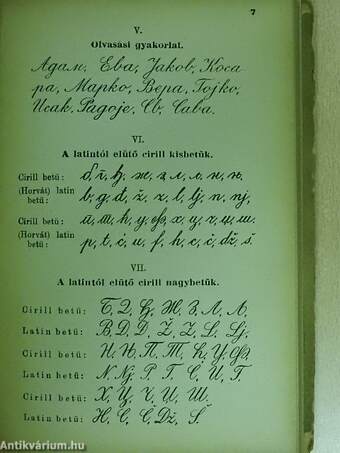 7
V.
Olvasási gyakorlat.
Адам, Ева, Јаков, Коса
ра, Марко, Вера, Гојко,
Исак, Радоје, Св. Сава.
VI.
A latintól elütő cirill kisbetük.
Cirill betü: б, г, ђ, ж, з, л, љ, н, њ.
(Horvát) latin betü: b, g, đ, ž, z, l, lj, n, nj,
Cirill betü: п, т, ћ, у, ф, х, ц, ч, џ, ш.
(Horvát) latin betü: p, t, ć, u, f, h, c, č, dž, š.
VII.
A latintól elütő cirill nagybetük.
Cirill betü: Б, Д, Ђ, Ж, З, Л, Љ,
Latin betü: B, D, Đ, Ž, Z, L, Lj,
Cirill betü: Н, Њ, П, Т, Ћ, У, Ф,
Latin betü: N, Nj, P, T, Ć, U, F,
Cirill betü: Х, Ц, Ч, Џ, Ш.
Latin betü: H, C, Č, Dž, Š.
Antikvárium.hu